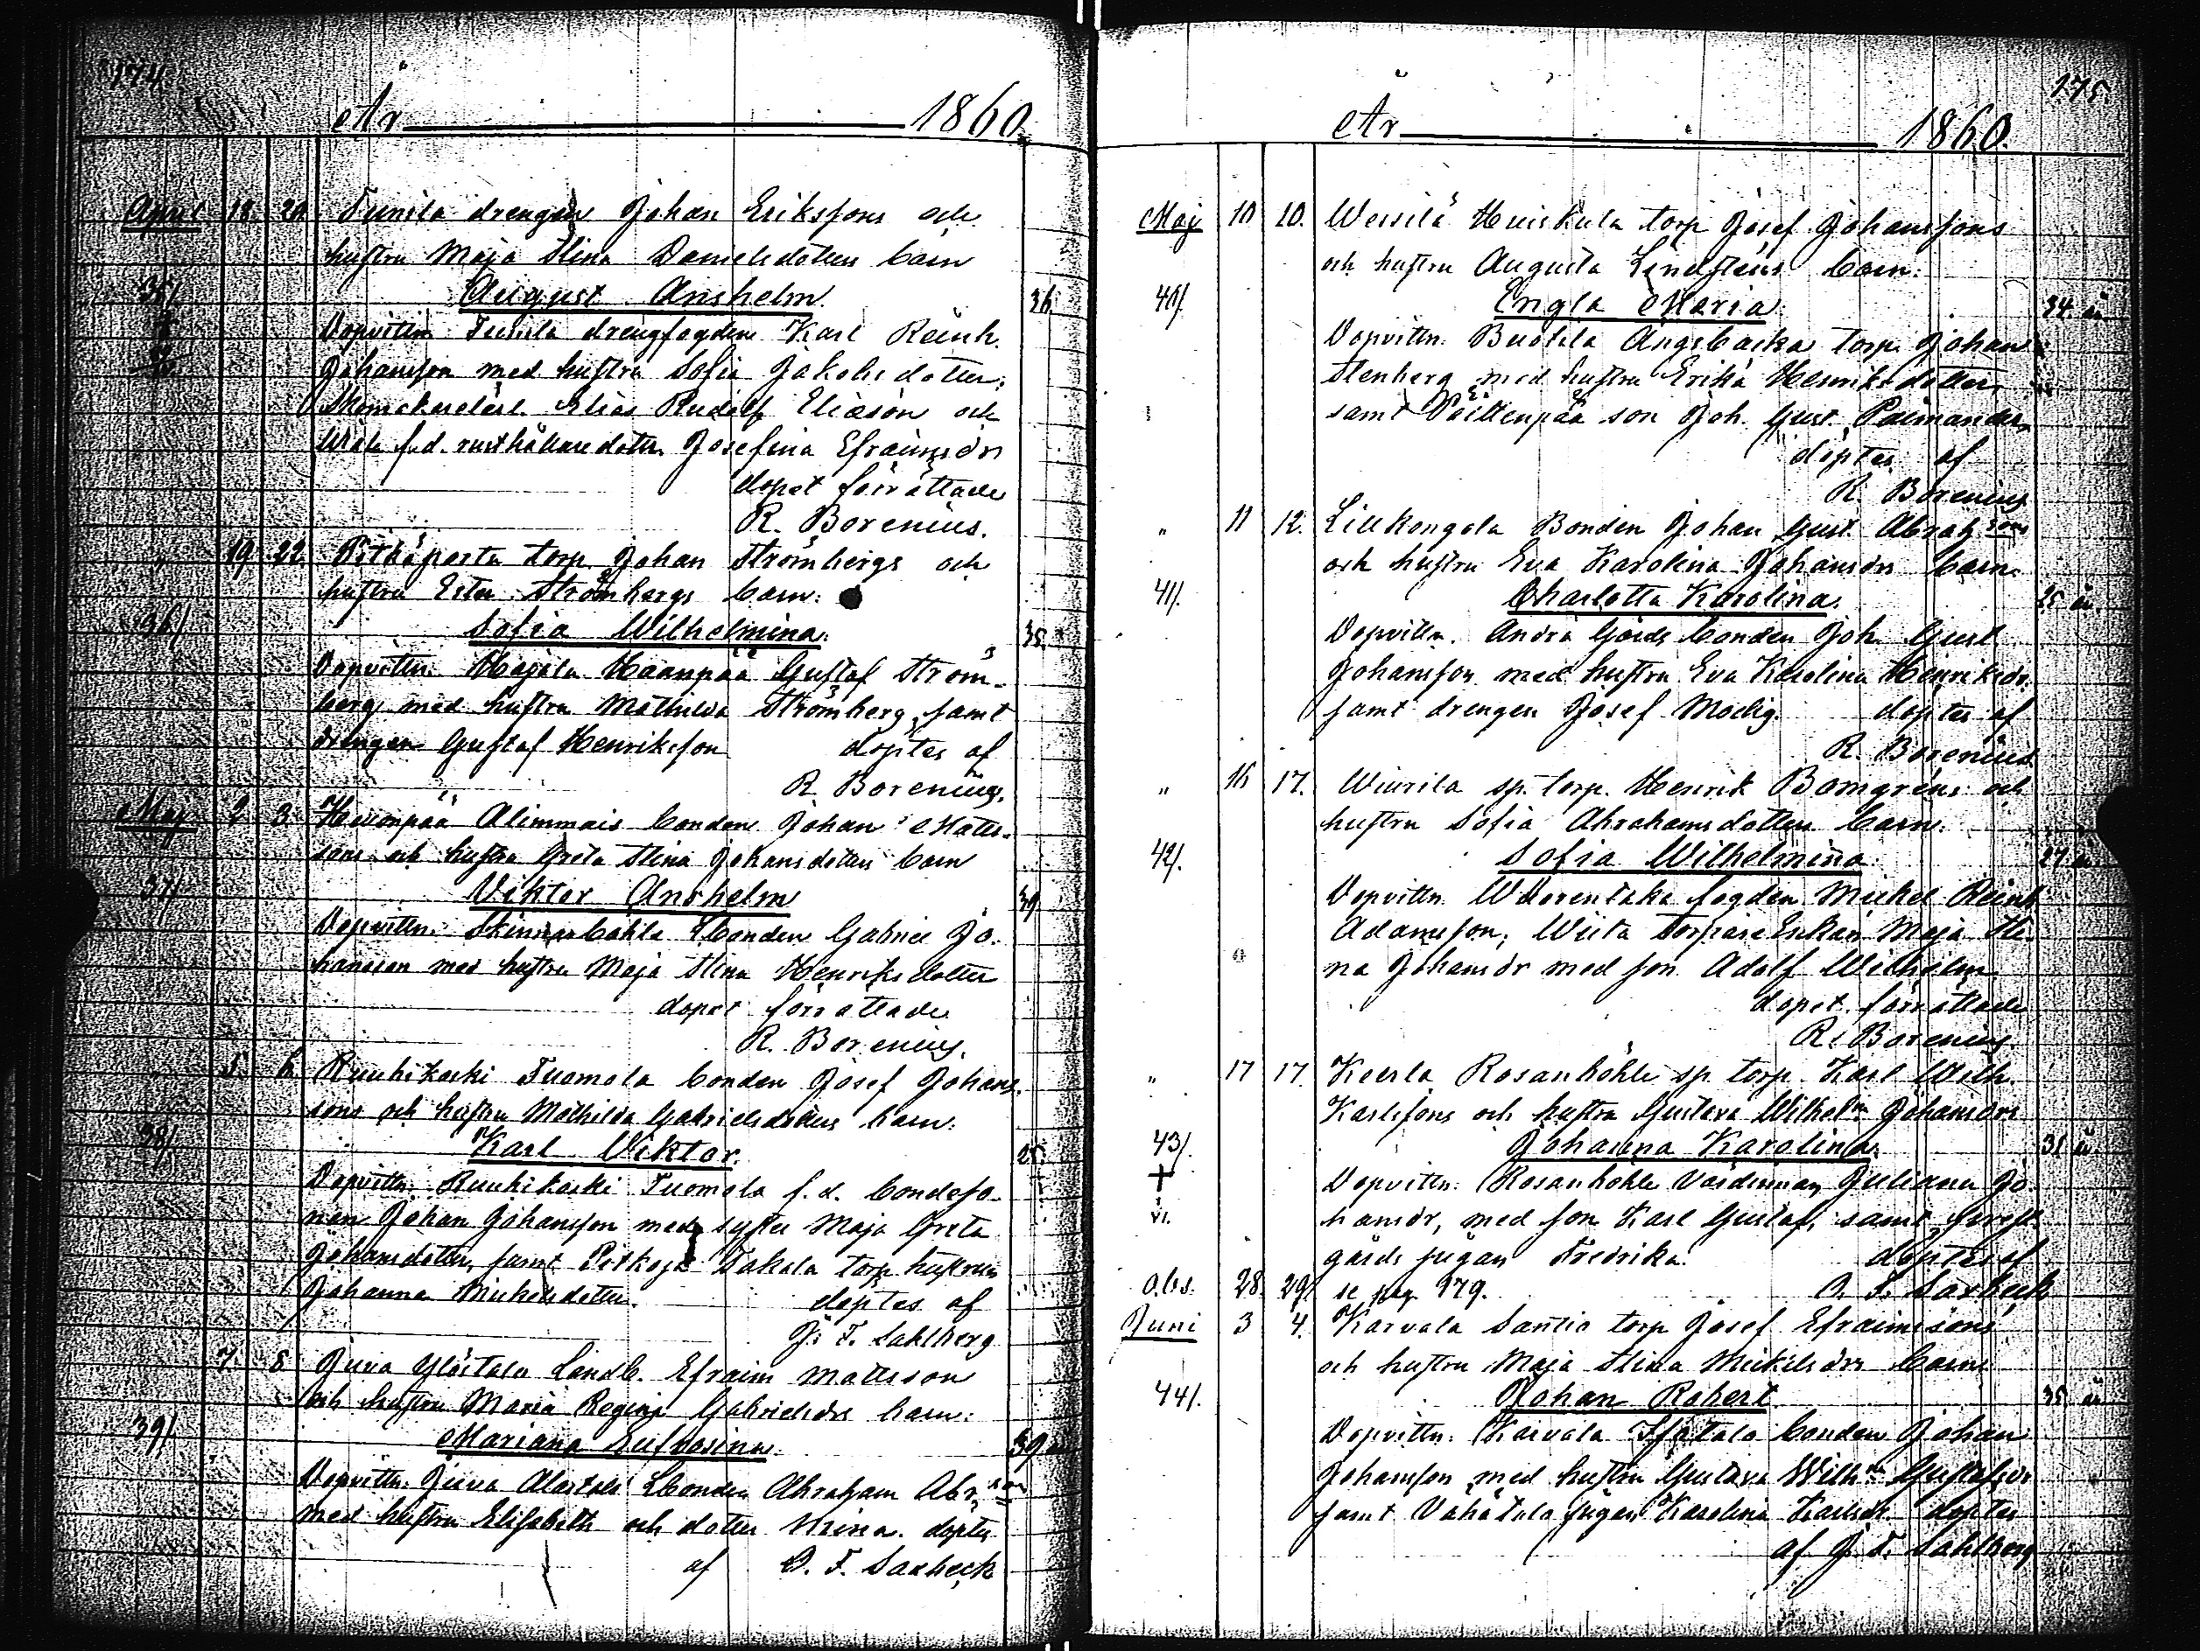 174.
År 1860.
April 18. 20. Tunila drengen Johan Erikssons och
hustru Maja Stina Danielsdotters barn
35/. August Anshelm. 36.
Dopvittn. Tunila drengfogden Karl Reinh.
Johansson med hustru Sofia Jakobsdotter;
Skomakarelärl. Elias Rudolf Eliason och
f.d. rusthållare dottr. Josefina Efraimsdr
dopet förrättade
R. Borenius.
" 19. 22. Pitkäporta torp. Johan Strömbergs och
hustru Ester Strömbergs barn:
36/. Sofia Wilhelmina. 35.
Dopvittn. Haanpää Gustaf Ström-
berg med hustru Mathilda Strömberg samt
drengen Gustaf Henriksson döptes af
R. Borenius.
Maj 2. 3. Alimmais bonden Johan Matts-
sons och hustru Greta Stina Johansdotters barn
37/. Viktor Anshelm 39.
Dopvittn. bonden Gabriel Jo-
hansson med hustru Maja Stina Henriksdotter
dopet förrättade
R. Borenius.
5. 6. Ruuhikoski Tuomola bonden Josef Johans-
sons och hustru Mathilda Gabrielsdotters barn.
38/. Karl Viktor. 25.
Dopvittn. Ruuhikoski Tuomola f.d. bondeso-
nen Johan Johansson med syster Maja Greta
Johansdotter, samt Takala torp. hustrun
Johanna Mickelsdotter. döptes af
J. F. Sahlberg
7. 8. Juva Ylöstalo Landb. Efraim Mattsson
och hustru Maria Regina Gabrielsdrs barn:
39/. Mariana Eufrosina. 39
Dopvittn. Juva Alastalo bonden Abraham Abr.son
med hustru Elisabeth och dotter Stina. döptes
af O. F. Saxbeck
175.
År 1860.
Maj 10 10. torp. Josef Johanssons
och hustru Augusta barn:
40/. Engla Maria. 34 år
Dopvittn. Ängsbacka torp. Johan
Stenberg med hustru Erika Henriksdotter
samt son Joh. Gust. Palmander
döptes af
R. Borenius
" 11 12. Lillkongola Bonden Johan Gust. Abrah.sons
och hustru Eva Karolina Johansdrs barn.
41/. Charlotta Karolina. 25 år
Dopvittn. Andra Gårds bonden Joh. Gust.
Johansson med hustru Eva Karolina Henriksdr.
samt drengen Josef Modig. döptes af
R. Borenius
" 16 17. Wiurila sp. torp. Henrik Bomgréns och
hustru Sofia Abrahamsdotters barn.
42/. Sofia Wilhelmina. 27 år
Dopvittn. Wuorentaka fogden Mickel Reinh.
Adamsson; Wiita torpare Enkan Maja Sti-
na Johansdr med son Adolf Wilhelm
dopet förrättade
R. Borenius.
" 17 17. Keerla Rosanköhle sp. torp. Karl Wilh.
Karlssons och hustru Gustava Wilhelma Johansdrs
43/. Johanna Karolina. 31 år.
+ Dopvittn. Rosanköhle Juliana Jo-
hansdr, med son Karl Gustaf, samt
gårds pigan Fredrika. döptes af
obs. 28. 29. se pag. 179. O. F. Saxbeck
Juni 3 4. Karvala torp. Josef Efraimssons
och hustru Maja Stina Mickelsdrs barn
44/. Johan Robert 35 år
Dopvittn. Karvala Isotalo bonden Johan
Johansson med hustru Gustava Wilh.na Gustafsdr
samt Vähätalo pigan Karolina Karlsdr. döptes
af J. F. Sahlberg